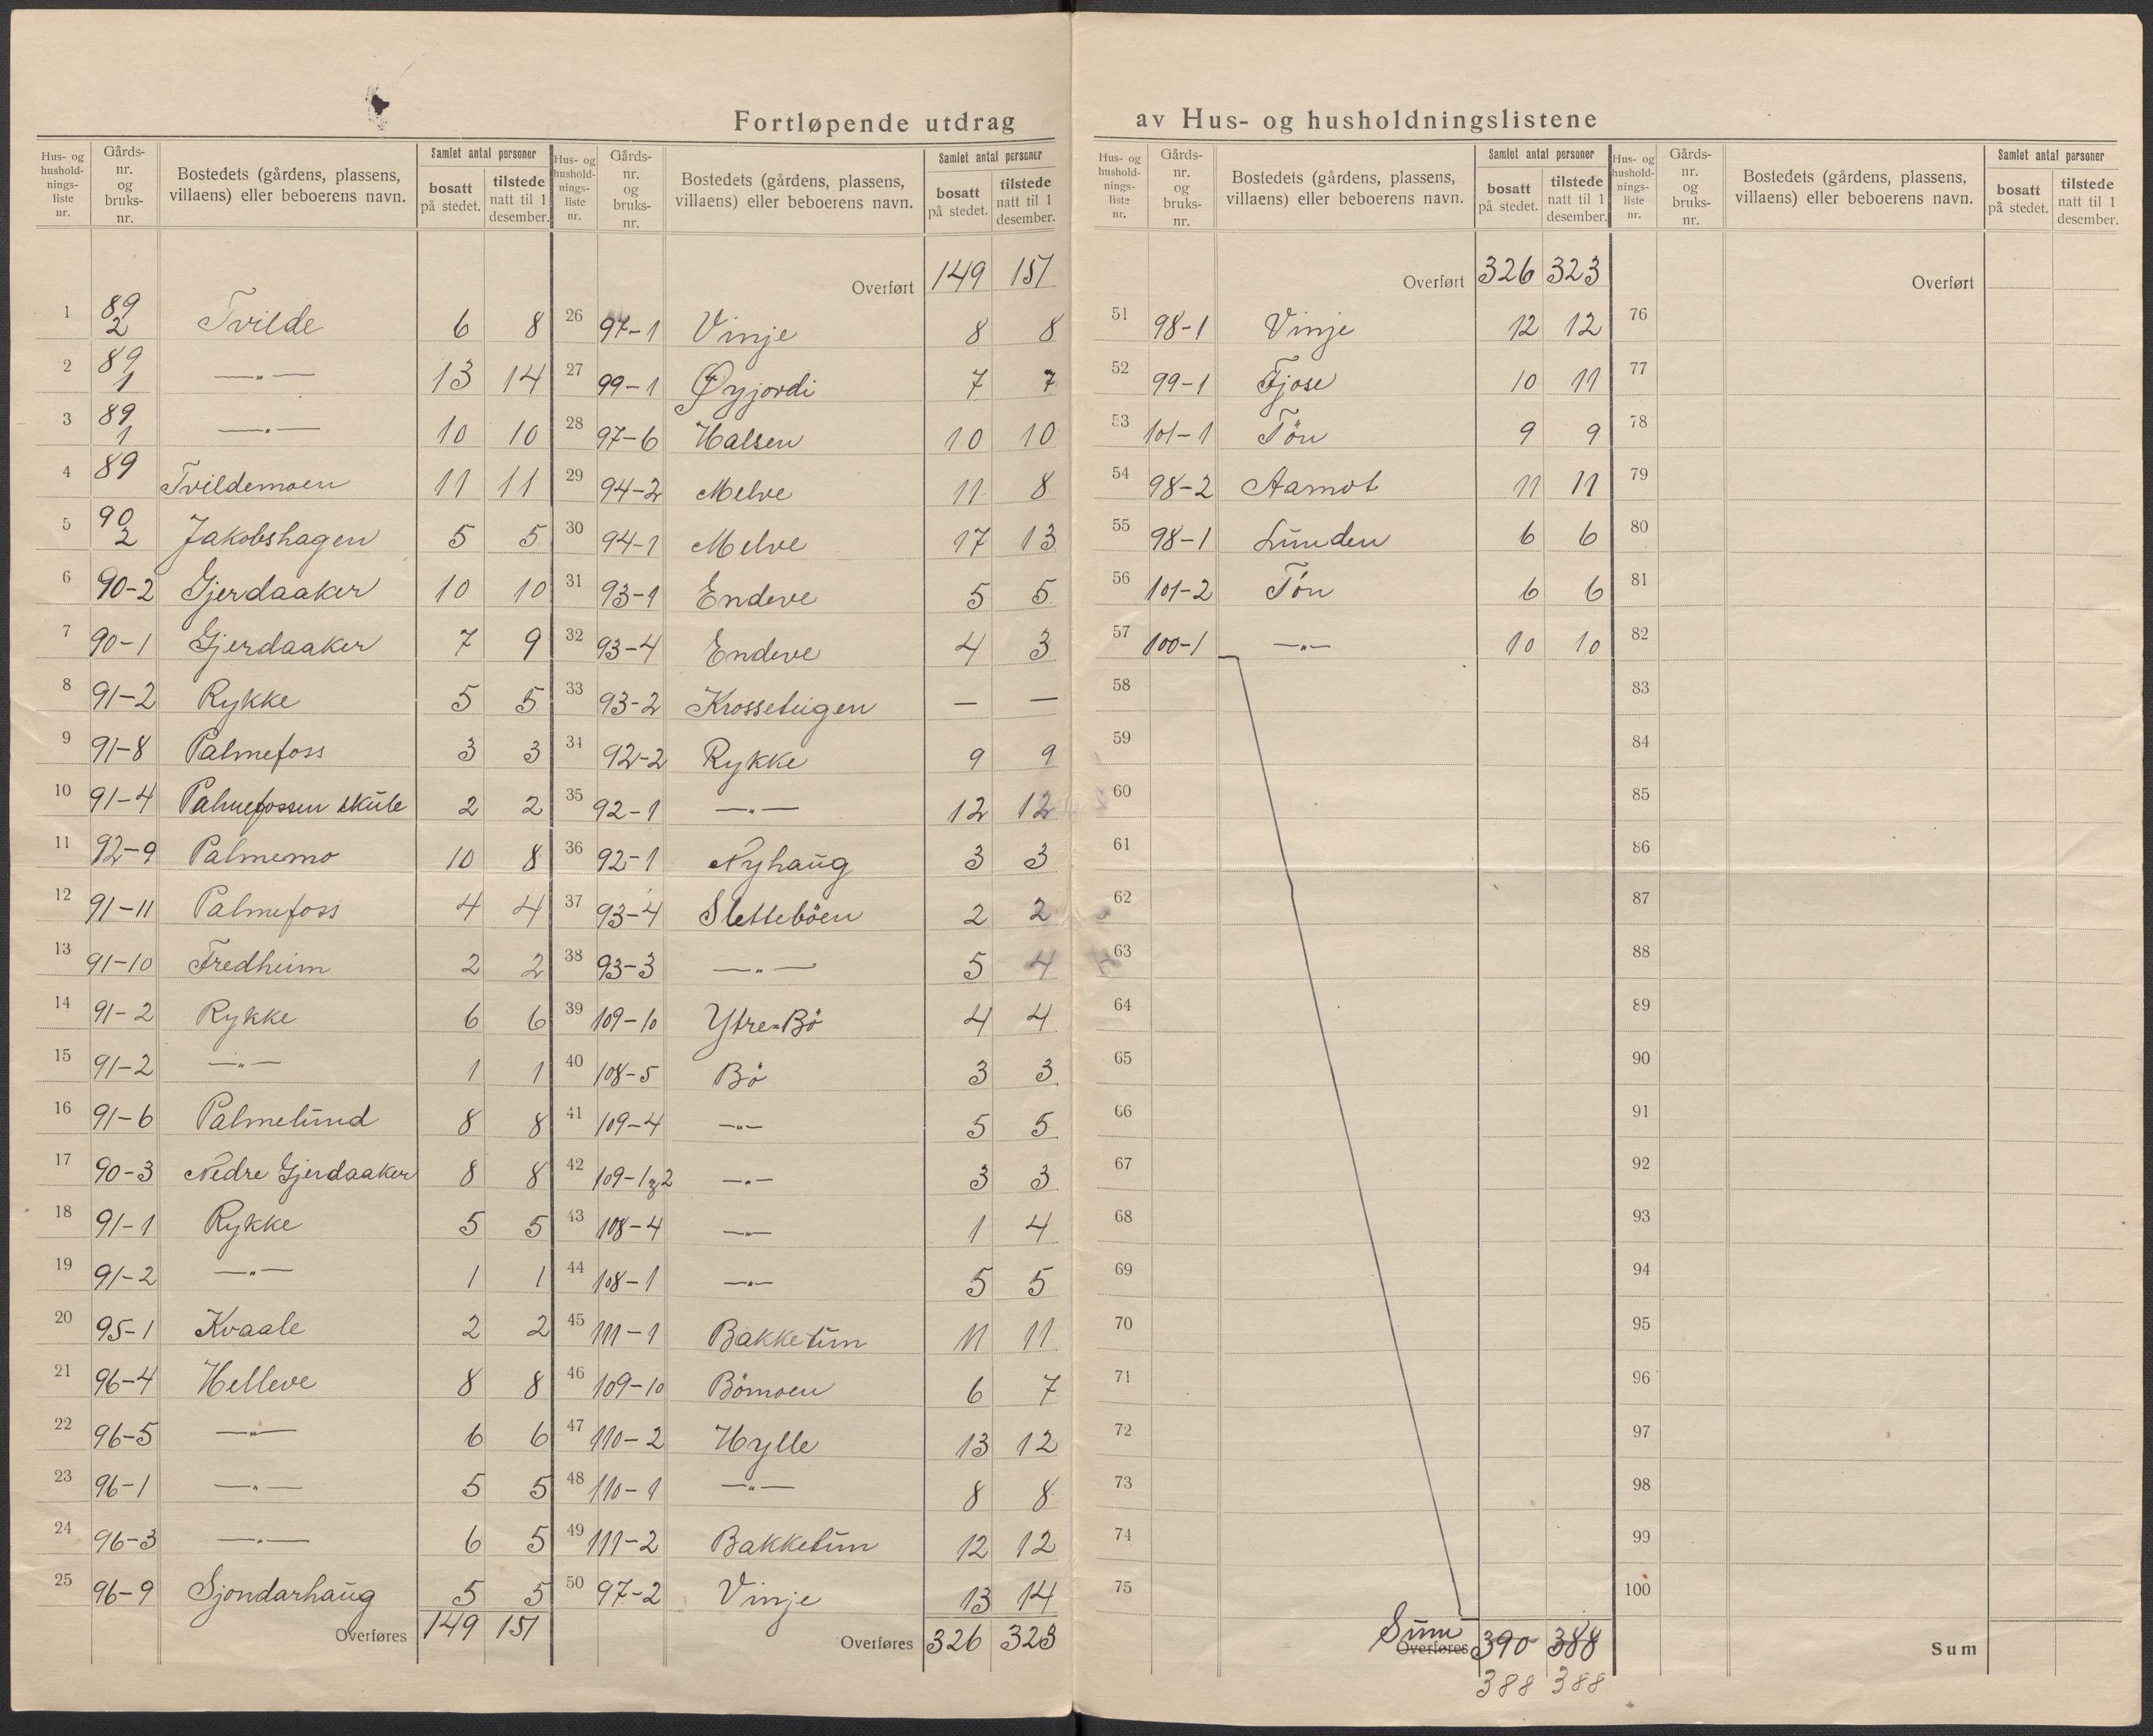 Fortløpende utdrag av Hus- og husholdningslistene
Hus- og husholdningsliste nr. | Gårdsnr. og bruksnr. | Bostedets (gårdens, plassens, villaens) eller beboerens navn. | Samlet antal personer bosatt på stedet. | tilstede natt til 1 desember.
1 89 2 Tvilde 6 8
2 89 1 —„— 13 14
3 89 1 —„— 10 10
4 89 Tvildemoen 11 11
5 90 2 Jakobshagen 5 5
6 90-2 Gjerdaaker 10 10
7 90-1 Gjerdaaker 7 9
8 91-2 Rykke 5 5
9 91-8 Palmefoss 3 3
10 91-4 Palmefossen skule 2 2
11 92-9 Palmemo 10 8
12 91-11 Palmefoss 4 4
13 91-10 Fredheim 2 2
14 91-2 Rykke 6 6
15 91-2 —„— 1 1
16 91-6 Palmelund 8 8
17 90-3 Nedre Gjerdaaker 8 8
18 91-1 Rykke 5 5
19 91-2 —„— 1 1
20 95-1 Kvaale 2 2
21 96-4 Helleve 8 8
22 96-5 —„— 6 6
23 96-1 —„— 5 5
24 96-3 —„— 6 5
25 96-9 Sjondarhaug 5 5
Overføres 149 151
Hus- og husholdningsliste nr. | Gårdsnr. og bruksnr. | Bostedets (gårdens, plassens, villaens) eller beboerens navn. | Samlet antal personer bosatt på stedet. | tilstede natt til 1 desember.
Overført 149 151
26 97-1 Vinje 8 8
27 99-1 Øyjordi 7 7
28 97-6 Halsen 10 10
29 94-2 Melve 11 8
30 94-1 Melve 17 13
31 93-1 Endeve 5 5
32 93-4 Endeve 4 3
33 93-2 Krosseteigen — —
34 92-2 Rykke 9 9
35 92-1 —„— 12 12
36 92-1 Nyhaug 3 3
37 93-4 Sletteböen 2 2
38 93-3 —„— 5 4
39 109-10 Ytre-Bö 4 4
40 108-5 Bö 3 3
41 109-4 —„— 5 5
42 109-1 2 —„— 3 3
43 108-4 —„— 1 4
44 108-1 —„— 5 5
45 111-1 Bakketun 11 11
46 109-10 Bömoen 6 7
47 110-2 Hylle 13 12
48 110-1 —„— 8 8
49 111-2 Bakketun 12 12
50 97-2 Vinje 13 14
Overføres 326 323
Hus- og husholdningsliste nr. | Gårdsnr. og bruksnr. | Bostedets (gårdens, plassens, villaens) eller beboerens navn. | Samlet antal personer bosatt på stedet. | tilstede natt til 1 desember.
Overført 326 323
51 98-1 Vinje 12 12
52 99-1 Fjose 10 11
53 101-1 Tön 9 9
54 98-2 Aamot 11 11
55 98-1 Lunden 6 6
56 101-2 Tön 6 6
57 100-1 —„— 10 10
58
59
60
61
62
63
64
65
66
67
68
69
70
71
72
73
74
75
Sum
Overføres 390 388
388 388
Hus- og husholdningsliste nr. | Gårdsnr. og bruksnr. | Bostedets (gårdens, plassens, villaens) eller beboerens navn. | Samlet antal personer bosatt på stedet. | tilstede natt til 1 desember.
Overført
76
77
78
79
80
81
82
83
84
85
86
87
88
89
90
91
92
93
94
95
96
97
98
99
100
Sum